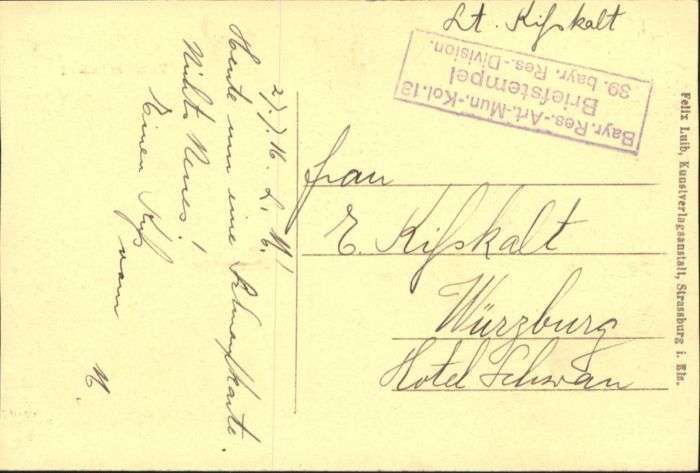 Lt. Kißkalt
Bayr. Res.-Art.-Mun.-Kol. 13
Briefstempel
39. bayr. Res.-Division.
Frau
E. Kißkalt
Würzburg
Hotel Schwan
27.7.16 L. M!
Heute nur eine
Nichts Neues!
Einen Kuß vom
M
Felix Luib, Kunstverlagsanstalt, Strassburg i. Els.